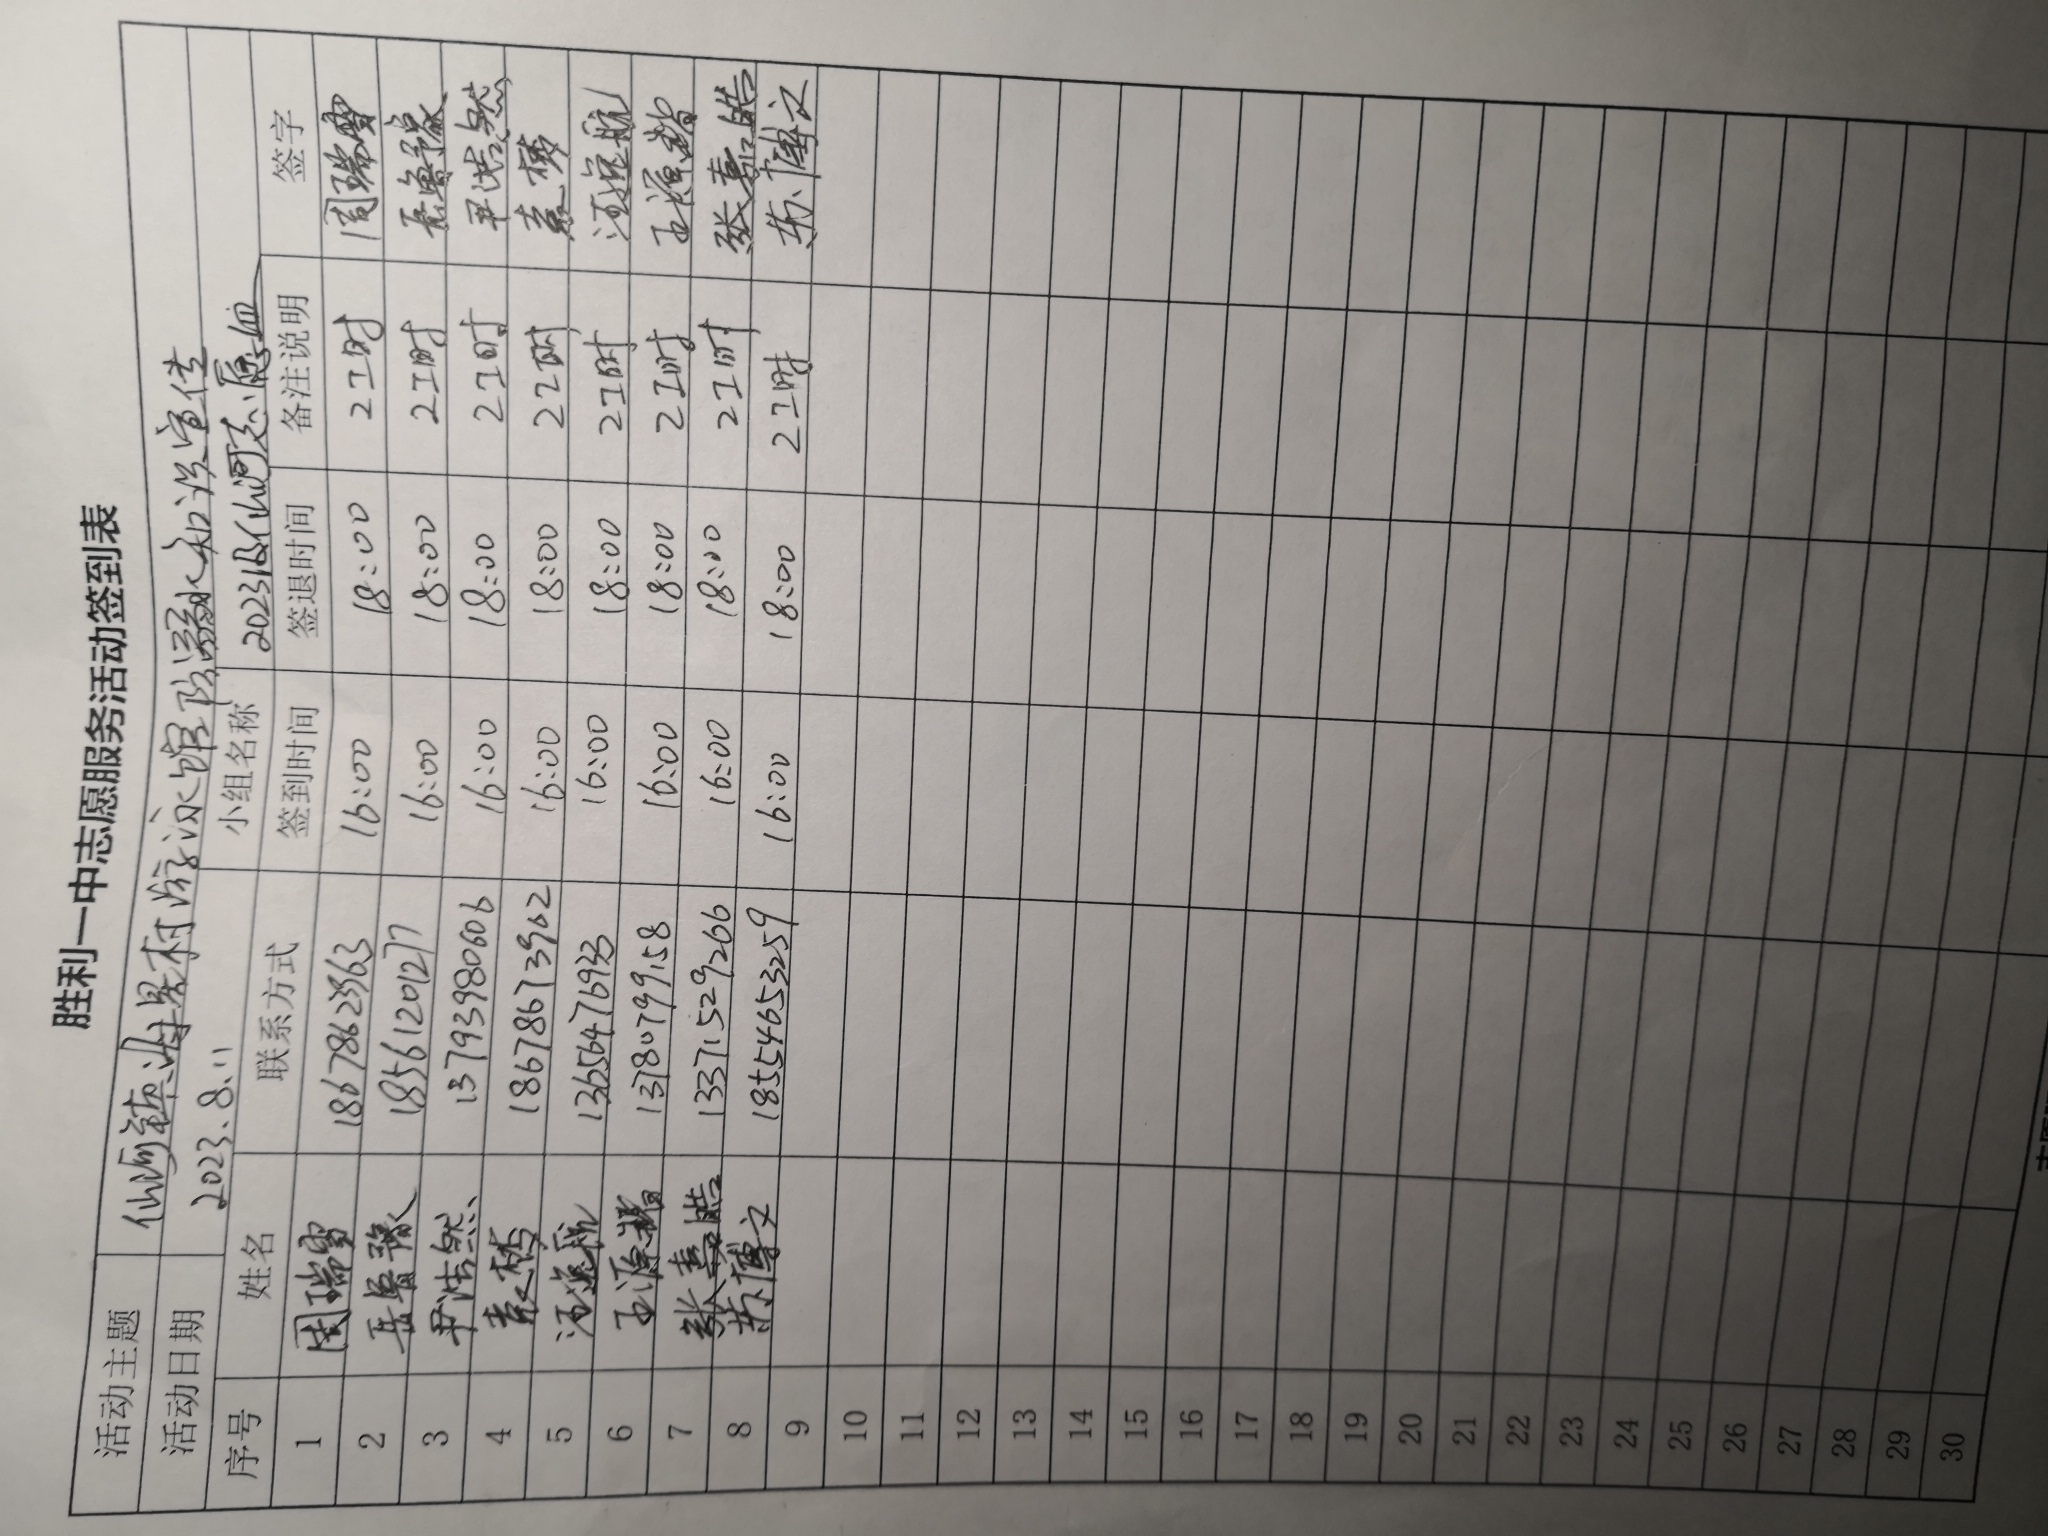 胜利一中志愿服务活动签到表
活动主题 仙河镇海星村游泳馆防溺水知识宣传
活动日期 2023.8.11 小组名称 2023级仙河志愿
序号 姓名 联系方式 签到时间 签退时间 备注说明 签字
1 周瑞雪 18678623963 16:00 18:00 2工时 周瑞雪
2 岳鲁豫 18561201277 16:00 18:00 2工时 岳鲁豫
3 尹浩然 13793980606 16:00 18:00 2工时 尹浩然
4 袁梣 18678673962 16:00 18:00 2工时 袁梣
5 汪远航 13656476933 16:00 18:00 2工时 汪远航
6 王源楷 13780799158 16:00 18:00 2工时 王源楷
7 张嘉皓 13371529266 16:00 18:00 2工时 张嘉皓
8 苏博文 18554653259 16:00 18:00 2工时 苏博文
9
10
11
12
13
14
15
16
17
18
19
20
21
22
23
24
25
26
27
28
29
30